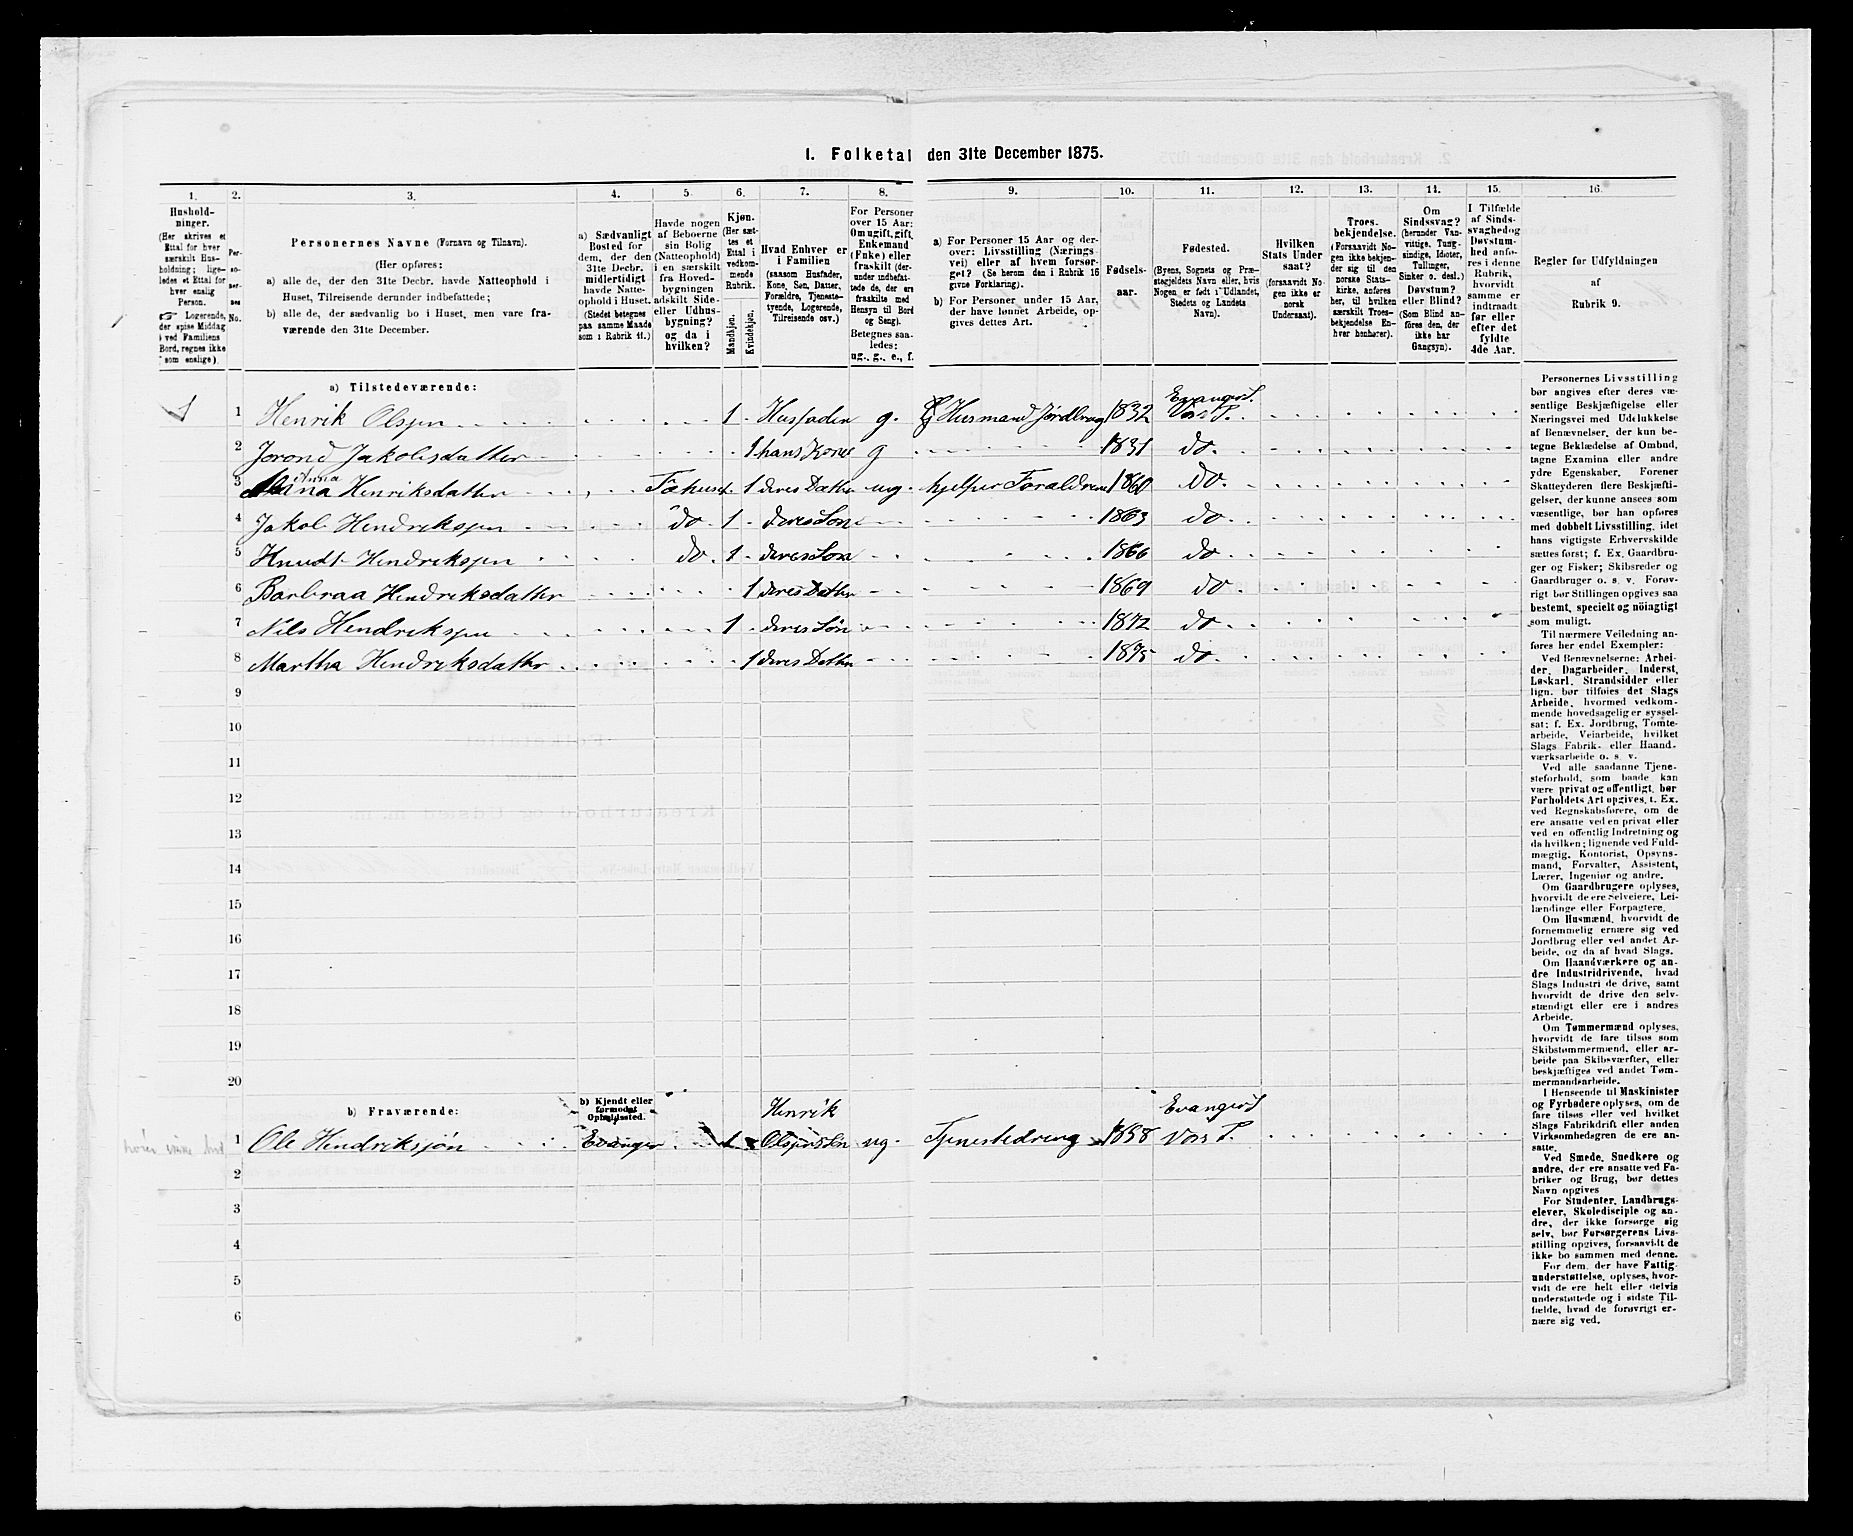 I. Folketal den 31te December 1875.
1. 2. 3. 4. 5. 6. 7. 8. 9. 10. 11. 12. 13. 14. 15. 16.
Hushold-
ninger.
(Her skrives et
Ettal for hver
særskilt Hus-
holdning; lige-
ledes et Ettal for
hver enslig
Person.
☞ Logerende,
der spise Middag
ved Familiens
Bord, regnes ikke
som enslige).
Per-
so-
ner-
nes
No.
Personernes Navne (Fornavn og Tilnavn).
(Her opføres:
a) alle de, der den 31te Decbr. havde Natteophold i
Huset, Tilreisende derunder indbefattede;
b) alle de, der sædvanlig bo i Huset, men vare fra-
værende den 31te December.
a) Sædvanligt
Bosted for
dem, der den
31te Decbr.
midlertidigt
havde Natte-
ophold i Huset.
(Stedet betegnes
paa samme Maade
som i Rubrik 11.)
Havde nogen
af Beboerne
sin Bolig
(Natteophold)
i en særskilt
fra Hoved-
bygningen
adskilt Side-
eller Udhus-
bygning?
og da i
hvilken?
Kjøn.
(Her sæt-
tes et
Ettal i
vedkom-
mende
Rubrik.
Mandkjøn.
Kvindekjøn.
Hvad Enhver er
i Familien
(saasom Husfader,
Kone, Søn, Datter,
Forældre, Tjeneste-
tyende, Logerende,
Tilreisende osv.)
For Personer
over 15 Aar:
Om ugift, gift,
Enkemand
(Enke) eller
fraskilt (der-
under indbefat-
tede de, der ere
fraskilte med
Hensyn til Bord
og Seng).
Betegnes saa-
ledes:
ug., g., e., f.
a) For Personer 15 Aar og der-
over: Livsstilling (Nærings-
vei) eller af hvem forsør-
get? (Se herom den i Rubrik 16
givne Forklaring).
b) For Personer under 15 Aar,
der have lønnet Arbeide, op-
gives dettes Art.
Fødsels-
aar.
Fødested.
(Byens, Sognets og Præ-
stegjeldets Navn eller, hvis
Nogen er født i Udlandet,
Stedets og Landets
Navn).
Hvilken
Stats Under
saat?
(forsaavidt No-
gen ikke er
norsk
Undersaat).
Troes-
bekjendelse.
(Forsaavidt No-
gen ikke bekjen-
der sig til den
norske Stats-
kirke, anføres
her, til hvilken
særskilt Troes-
bekjendelse En-
hver henhører).
Om
Sindssvag?
(herunder Van-
vittige, Tung-
sindige, Idioter,
Tullinger,
Sinker o. desl.)
Døvstum?
eller Blind?
(Som Blind an-
føres den, der
ikke har
Gangsyn).
I Tilfælde
af Sinds-
svaghed og
Døvstum-
hed anfø-
res i denne
Rubrik,
hvorvidt
samme er
indtraadt
før eller
efter det
fyldte
4de Aar.
Regler for Udfyldningen
af
Rubrik 9.
a) Tilstedeværende:
1 1 Henrik Olsen 1 Husfader g. Husmand Jordbrug 1832 Evanger S. Vors P.
2 Jorond Jakobsdatter 1 hans Kone g 1831 do.
3 Anna Henriksdatter Fæhuset 1 deres Datter ug hjelper Foræeldrene 1860 do.
4 Jakob Hendriksen do 1 deres Søn 1863 do
5 Knudt Hendriksen do 1 deres Søn 1866 do
6 Barbraa Hendriksdatter 1 deres Datter 1869 do
7 Nils Hendriksen 1 deres Søn 1872 do
8 Martha Hendriksdatter 1 deres Datter 1875 do
9
10
11
12
13
14
15
16
17
18
19
20
b) Fraværende:
b) Kjendt eller
formodet
Opholdssted.
1 Ole Hendriksøn Evanger 1 Henrik Olsens Søn ug Tjenestedreng 1858 Evanger S Vors P.
2
3
4
5
6
Personernes Livsstilling
bør angives efter deres væ-
sentlige Beskjæftigelse eller
Næringsvei med Udelukkelse
af Benævnelser, der kun be-
tegne Beklædelse af Ombud,
tagne Examina eller andre
ydre Egenskaber. Forener
Skatteyderen flere Beskjæfti-
gelser, der kunne ansees som
væsentlige, bør han opføres
med dobbelt Livsstilling, idet
hans vigtigste Erhvervskilde
sættes først; f. Ex. Gaardbru-
ger og Fisker; Skibsreder og
Gaardbruger o. s. v. Forøv-
rigt bør Stillingen opgives saa
bestemt, specielt og nøiagtigt
som muligt.
Til nærmere Veiledning an-
føres her endel Exempler:
Ved Benævnelserne: Arbei-
der, Dagarbeider, Inderst,
Løskarl, Strandsidder eller
lign. bør tilføies det Slags
Arbeide, hvormed vedkom-
mende hovedsagelig er syssel-
sat; f. Ex. Jordbrug, Tomte-
arbeide, Veiarbeide, hvilket
Slags Fabrik- eller Haand-
værksarbeide o. s. v.
Ved alle saadanne Tjene-
steforhold, som baade kan
være privat og offentligt, bør
Forholdets Art opgives, t. Ex.
ved Regnskabsførere, om de
ere ansatte ved en privat eller
ved en offentlig Indretning og
da hvilken; lignende ved Fuld-
mægtig, Kontorist, Opsyns-
mand, Forvalter, Assistent,
Lærer, Ingeniør og andre.
Om Gaardbrugere oplyses,
hvorvidt de ere Selveiere, Lei-
lændinge eller Forpagtere.
Om Husmænd, hvorvidt de
fornemmelig ernære sig ved
Jordbrug eller ved andet Ar-
beide, og da af hvad Slags.
Om Haandværkere og an-
dre Industridrivende, hvad
Slags Industri de drive, samt
hvorvidt de drive den selv-
stændigt eller ere i andres
Arbeide.
Om Tømmermænd oplyses,
hvorvidt de fare tilsøs som
Skibstømmermænd, eller ar-
beide paa Skibsværfter, eller
beskjæftiges ved andet Tøm-
mermandsarbeide.
I Henseende til Maskinister
og Fyrbødere oplyses, om de
fare tilsøs eller ved hvilket
Slags Fabrikdrift eller anden
Virksomhedsgren de ere an-
satte.
Ved Smede, Snedkere og
andre, der ere ansatte ved Fa-
briker og Brug, bør dettes
Navn opgives
For Studenter, Landbrugs-
elever, Skoledisciple og an-
dre, der ikke forsørge sig
selv, bør Forsørgerens Livs-
stilling opgives, forsaavidt de
ikke bo sammen med denne.
For dem, der have Fattig-
understøttelse, oplyses, hvor-
vidt de ere helt eller delvis
understøttede og i sidste Til-
fælde, hvad de forøvrigt er-
nære sig ved.